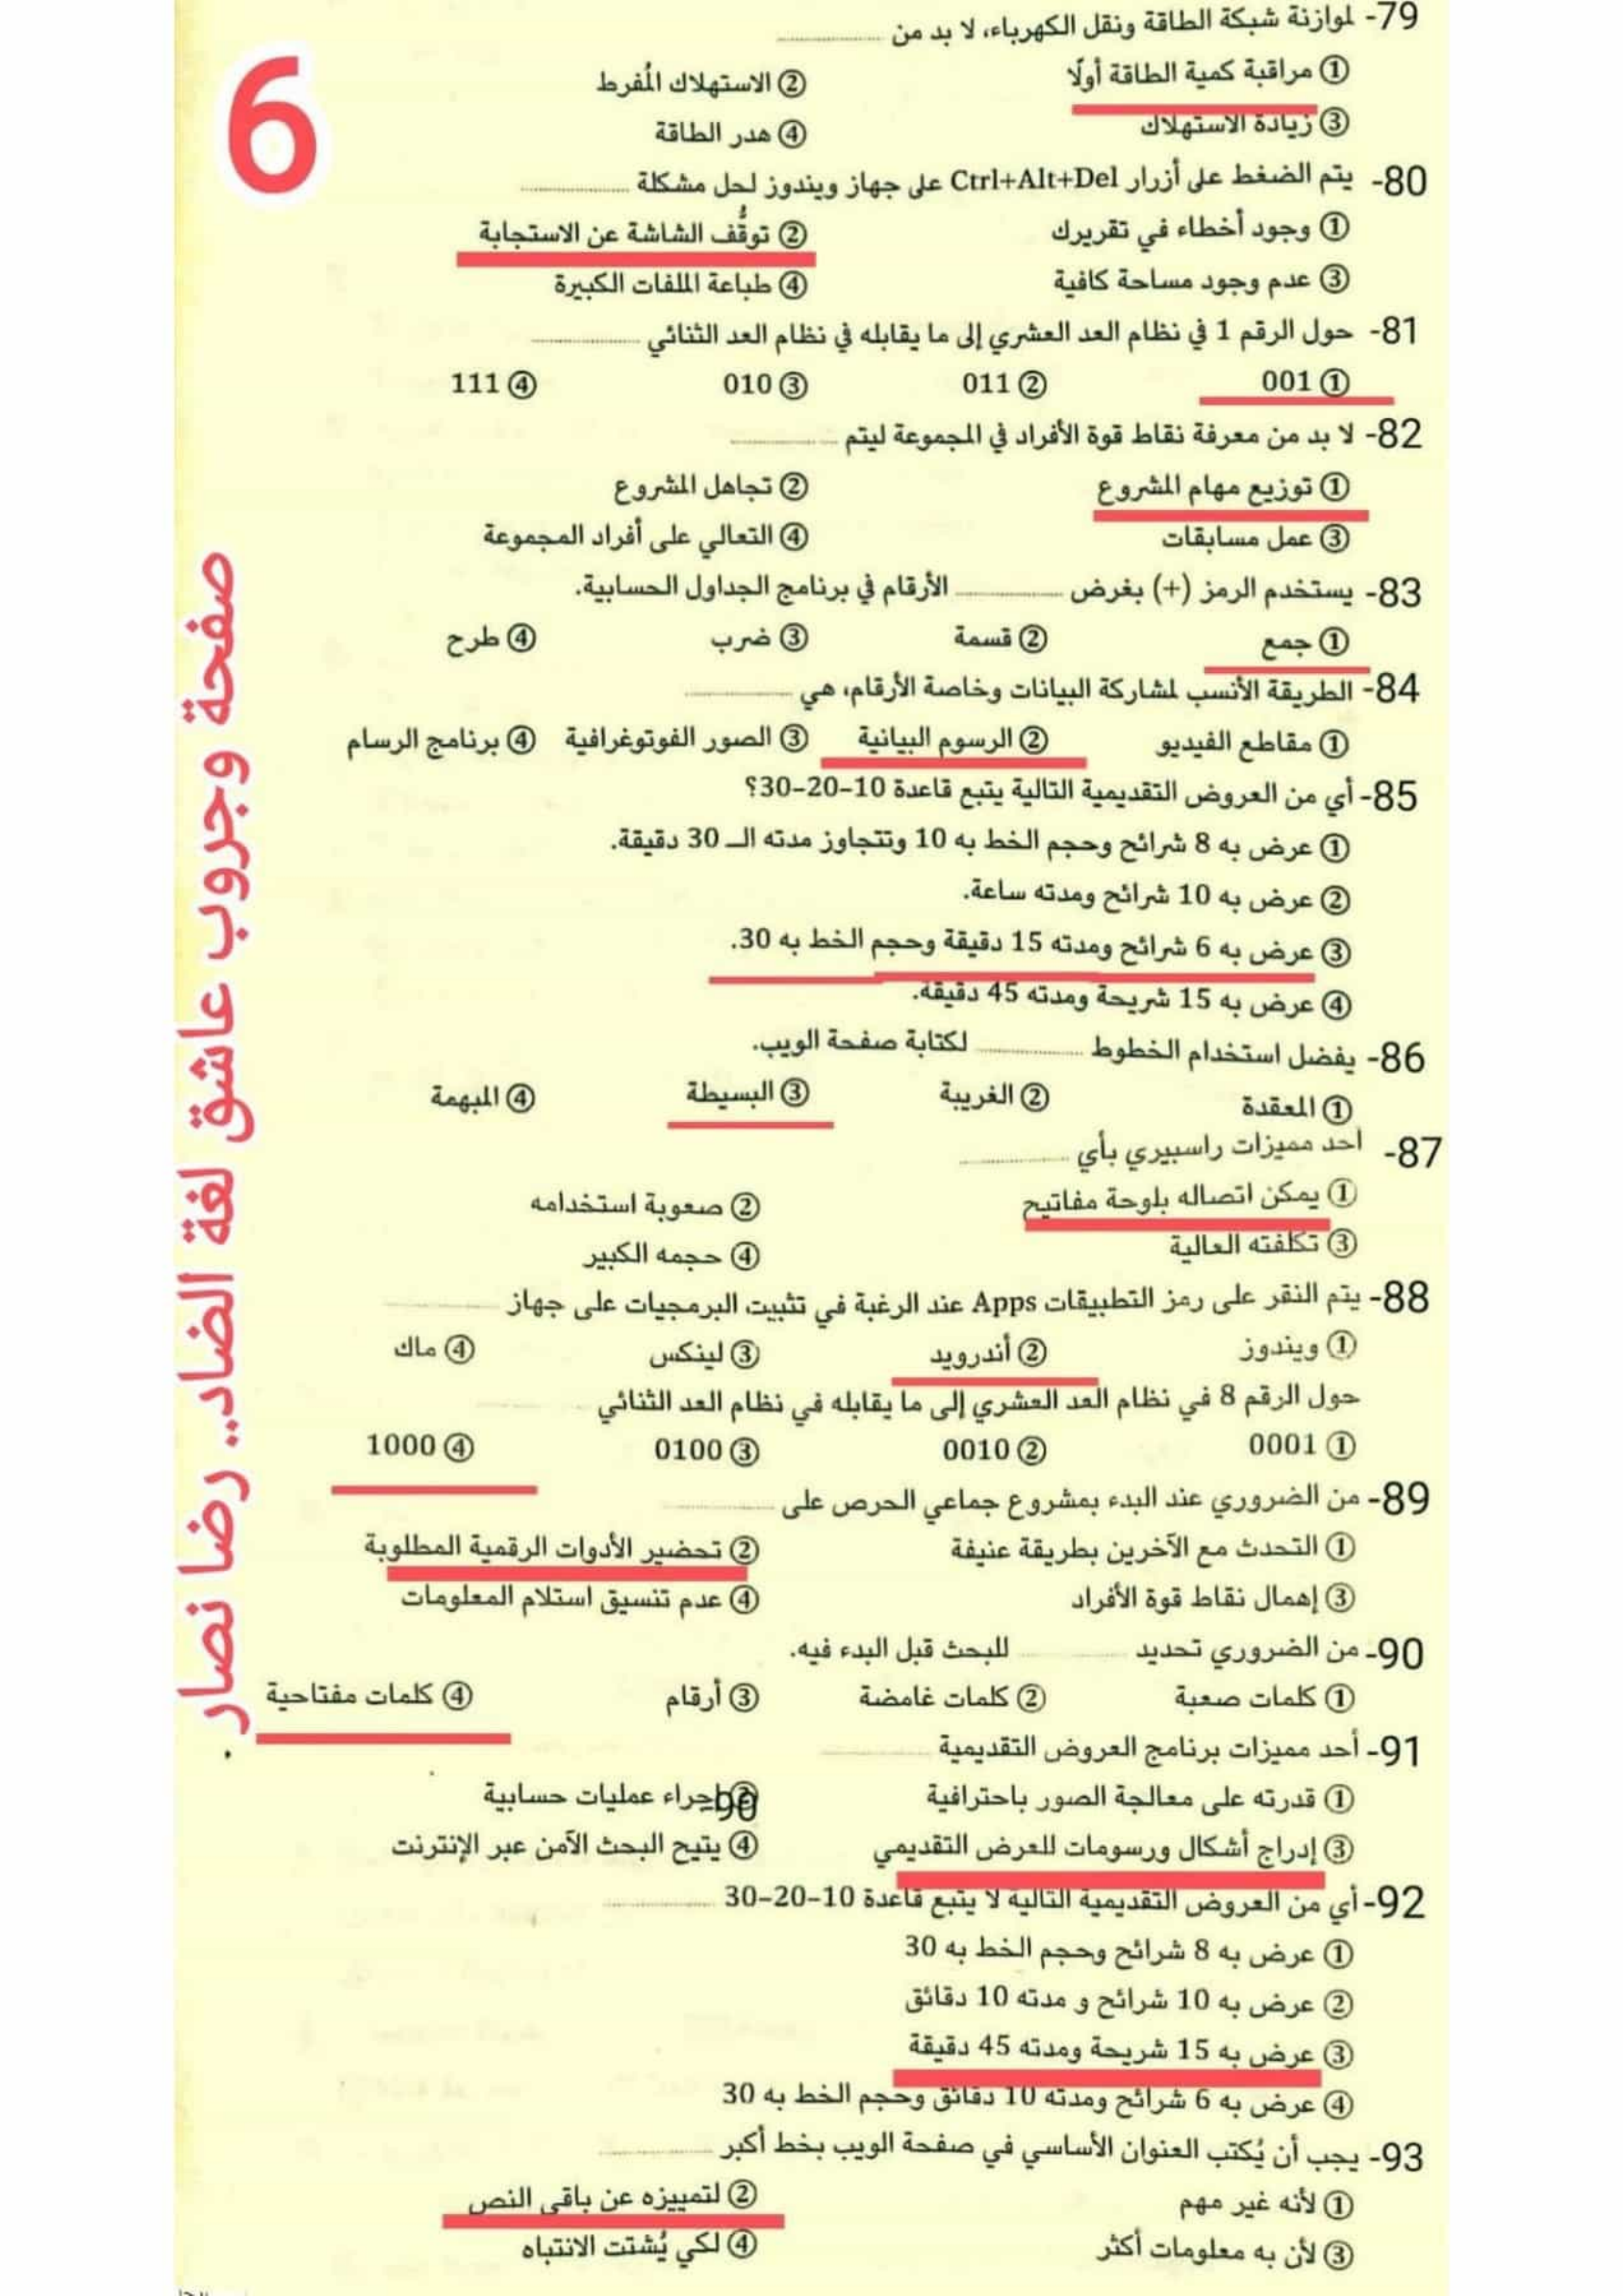 6
79- لموازنة شبكة الطاقة ونقل الكهرباء، لا بد من ..........
① مراقبة كمية الطاقة أولًا ② الاستهلاك المُفرط
③ زيادة الاستهلاك ④ هدر الطاقة
80- يتم الضغط على أزرار Ctrl+Alt+Del على جهاز ويندوز لحل مشكلة ..........
① وجود أخطاء في تقريرك ② توقُّف الشاشة عن الاستجابة
③ عدم وجود مساحة كافية ④ طباعة الملفات الكبيرة
81- حول الرقم 1 في نظام العد العشري إلى ما يقابله في نظام العد الثنائي ..........
① 001 ② 011 ③ 010 ④ 111
82- لا بد من معرفة نقاط قوة الأفراد في المجموعة ليتم ..........
① توزيع مهام المشروع ② تجاهل المشروع
③ عمل مسابقات ④ التعالي على أفراد المجموعة
83- يستخدم الرمز (+) بغرض .......... الأرقام في برنامج الجداول الحسابية.
① جمع ② قسمة ③ ضرب ④ طرح
84- الطريقة الأنسب لمشاركة البيانات وخاصة الأرقام، هي ..........
① مقاطع الفيديو ② الرسوم البيانية ③ الصور الفوتوغرافية ④ برنامج الرسام
85- أي من العروض التقديمية التالية يتبع قاعدة 10-20-30؟
① عرض به 8 شرائح وحجم الخط به 10 وتتجاوز مدته الـ 30 دقيقة.
② عرض به 10 شرائح ومدته ساعة.
③ عرض به 6 شرائح ومدته 15 دقيقة وحجم الخط به 30.
④ عرض به 15 شريحة ومدته 45 دقيقة.
86- يفضل استخدام الخطوط .......... لكتابة صفحة الويب.
① المعقدة ② الغريبة ③ البسيطة ④ المبهمة
87- أحد مميزات راسبيري بأي ..........
① يمكن اتصاله بلوحة مفاتيح ② صعوبة استخدامه
③ تكلفته العالية ④ حجمه الكبير
88- يتم النقر على رمز التطبيقات Apps عند الرغبة في تثبيت البرمجيات على جهاز ..........
① ويندوز ② أندرويد ③ لينكس ④ ماك
حول الرقم 8 في نظام العد العشري إلى ما يقابله في نظام العد الثنائي ..........
① 0001 ② 0010 ③ 0100 ④ 1000
89- من الضروري عند البدء بمشروع جماعي الحرص على ..........
① التحدث مع الآخرين بطريقة عنيفة ② تحضير الأدوات الرقمية المطلوبة
③ إهمال نقاط قوة الأفراد ④ عدم تنسيق استلام المعلومات
90- من الضروري تحديد .......... للبحث قبل البدء فيه.
① كلمات صعبة ② كلمات غامضة ③ أرقام ④ كلمات مفتاحية
91- أحد مميزات برنامج العروض التقديمية ..........
① قدرته على معالجة الصور باحترافية ② إجراء عمليات حسابية
90-
③ إدراج أشكال ورسومات للعرض التقديمي ④ يتيح البحث الآمن عبر الإنترنت
92- أي من العروض التقديمية التالية لا يتبع قاعدة 10-20-30 ..........
① عرض به 8 شرائح وحجم الخط به 30
② عرض به 10 شرائح و مدته 10 دقائق
③ عرض به 15 شريحة ومدته 45 دقيقة
④ عرض به 6 شرائح ومدته 10 دقائق وحجم الخط به 30
93- يجب أن يُكتب العنوان الأساسي في صفحة الويب بخط أكبر ..........
① لأنه غير مهم ② لتمييزه عن باقي النص
③ لأن به معلومات أكثر ④ لكي يُشتت الانتباه
صفحة وجروب عاشق لغة الضاد.. رضا نصار.